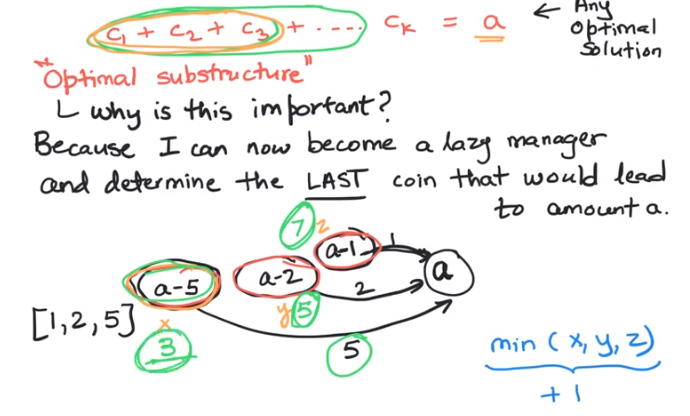 C₁ + C₂ + C₃ + ---- Cₖ = a ← Any
optimal
solution
"Optimal substructure"
└ why is this important?
Because I can now become a lazy manager
and determine the LAST coin that would lead
to amount a.
7 z
a-1 1
a-5 a-2 2 a
y 5
[1,2,5] x
3 5
min (x, y, z)
+ 1